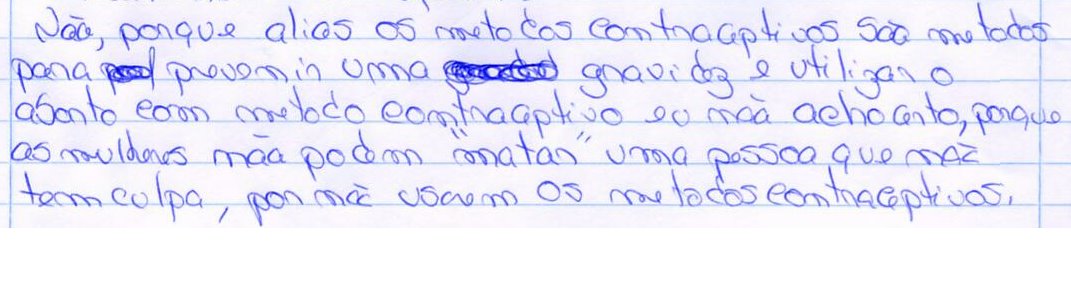 Não, porque alias os metodos contraceptivos são metodos
para prevemir uma gravidez e utilizar o
aborto com metodo comtraceptivo eu não acho certo, porque
as mulheres não podem "matar" uma pessoa que não
tem culpa, por não usarem os metodos contraceptivos.